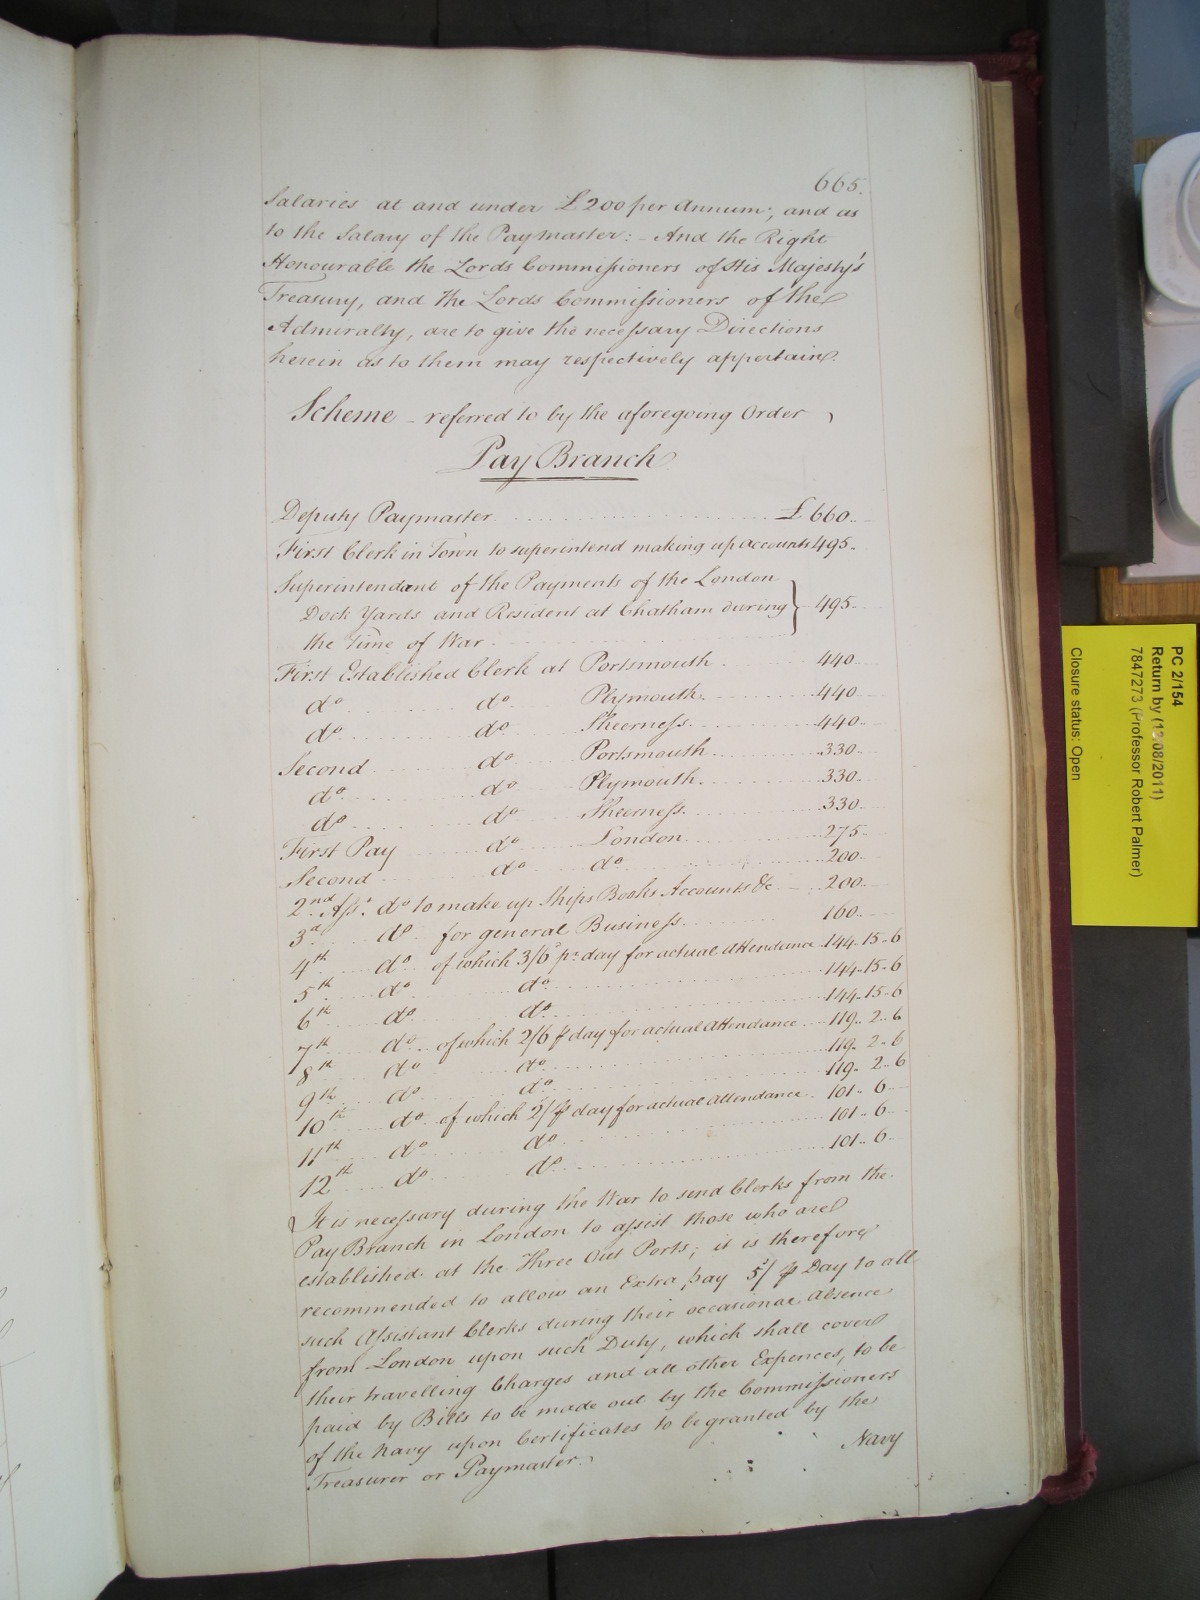 665.
Salaries at and under £200 per Annum; and as
to the Salary of the Paymaster: - And the Right
Honourable the Lords Commissioners of His Majesty's
Treasury, and the Lords Commissioners of the
Admiralty, are to give the necessary Directions
herein as to them may respectively appertain.
Scheme - referred to by the aforegoing Order
Pay Branch
Deputy Paymaster £660..
First Clerk in Town to superintend making up Accounts 495-
Superintendant of the Payments of the London
Dock Yards and Resident at Chatham during } 495-
the Time of War.
First Established Clerk at Portsmouth 440
do do Plymouth 440
do do Sheerness 440
Second do Portsmouth 330
do do Plymouth 330
do do Sheerness 330
First Pay do London 275-
Second do do 200
2nd Asst. do to make up Ships Books Accounts &c 200
3d do for general Business 160
4th do of which 3/6 pr day for actual attendance 144-15-6
5th do do 144-15-6
6th do do 144-15-6
7th do of which 2/6 p day for actual attendance 119.. 2..6
8th do do 119- 2-6
9th do do 119- 2-6
10th do of which 2/ p day for actual attendance 101- 6
11th do do 101.. 6
12th do do 101.. 6
It is necessary during the War to send Clerks from the
Pay Branch in London to assist those who are
established at the Three Out Ports; it is therefore
recommended to allow an Extra pay 5s/ p Day to all
such Assistant Clerks during their occasional Absence
from London upon such Duty, which shall cover
their travelling Charges and all other Expences, to be
paid by Bills to be made out by the Commissioners
of the Navy upon Certificates to be granted by the
Treasurer or Paymaster.
Navy
PC 2/154
Return by (12/08/2011)
7847273 (Professor Robert Palmer)
Closure status: Open